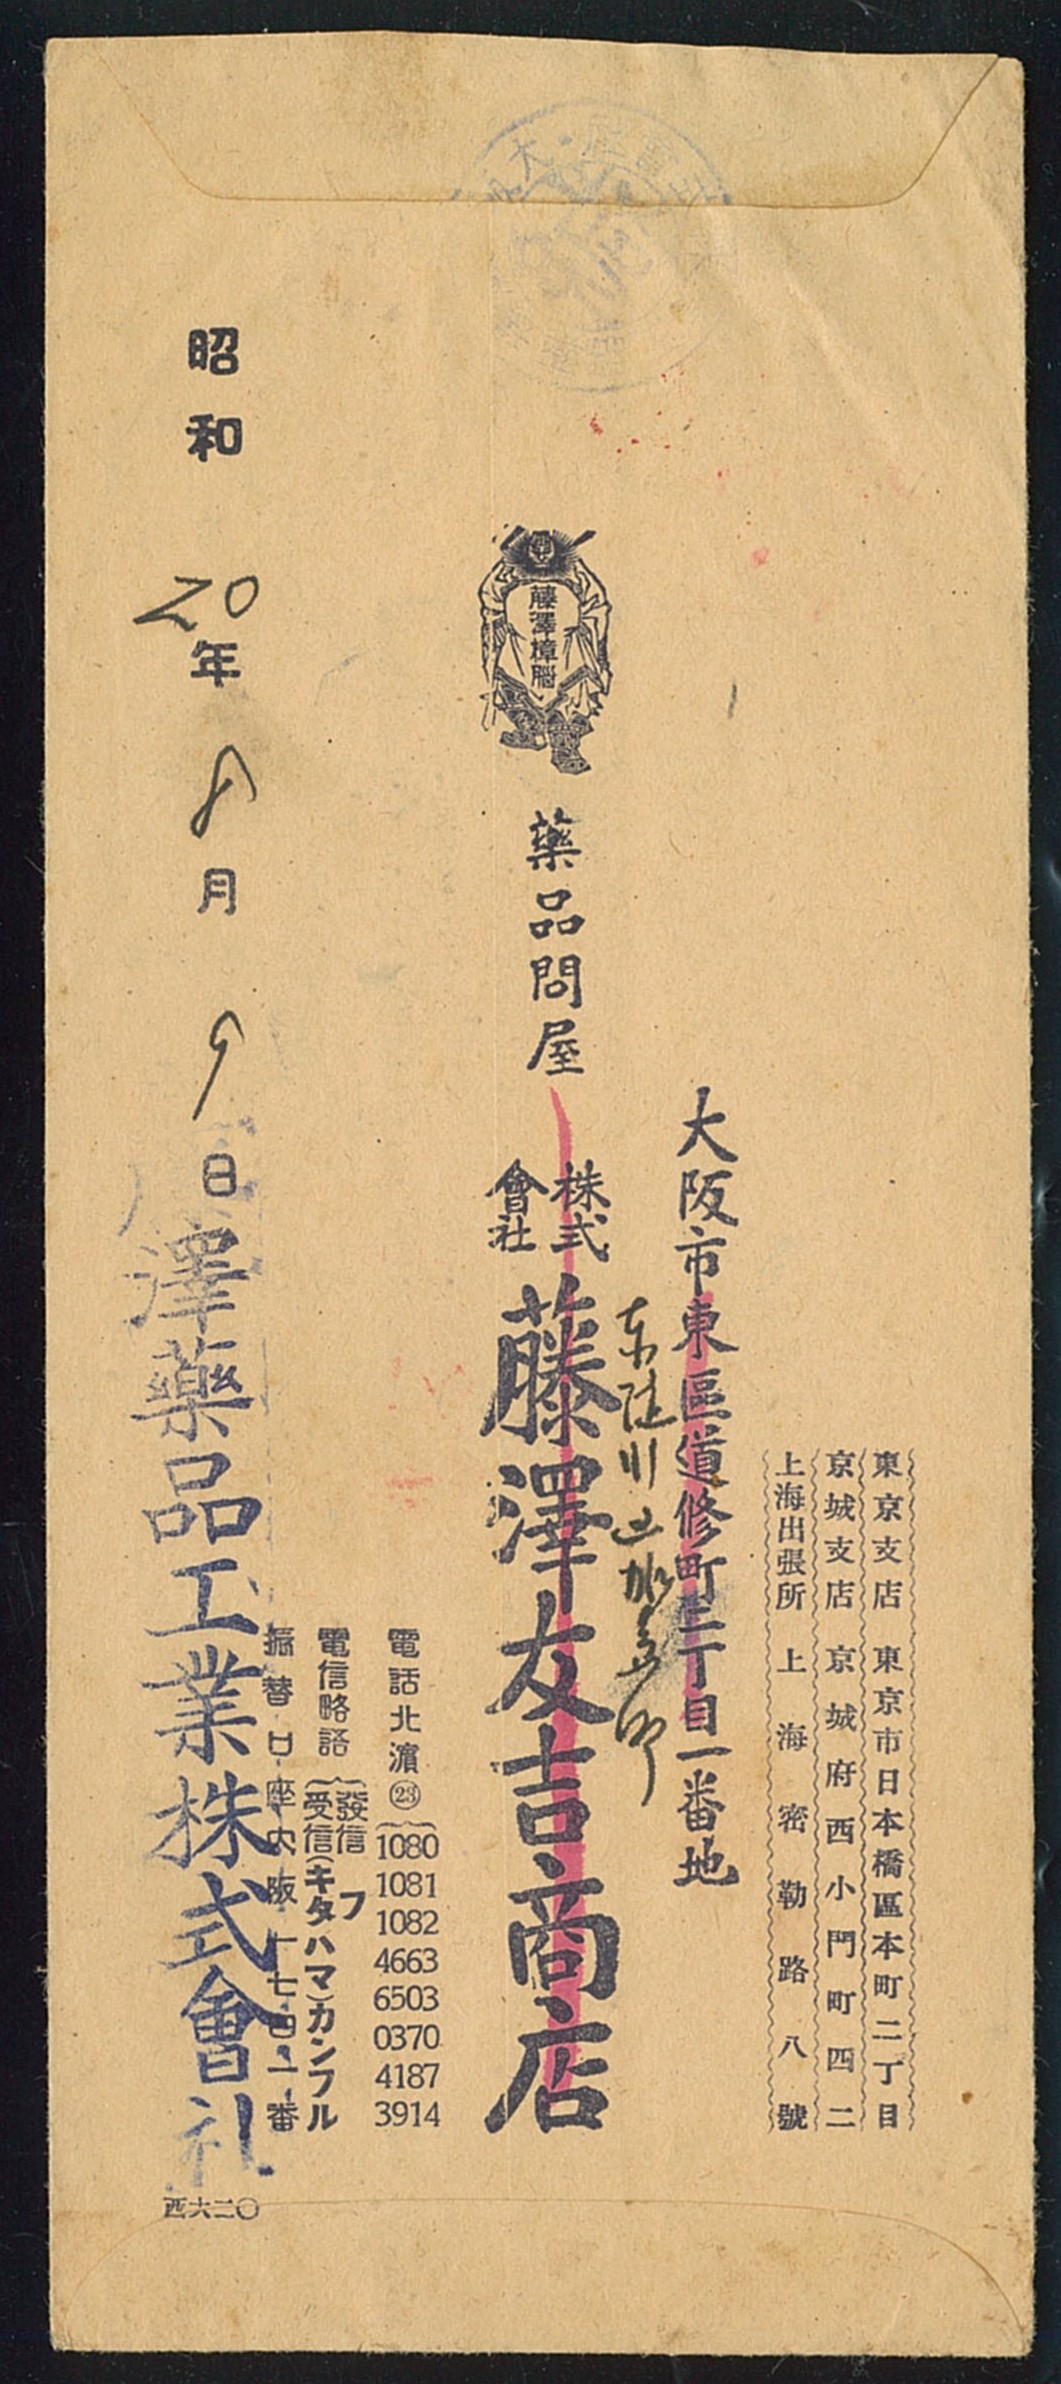 東京支店 東京市日本橋區本町二丁目
京城支店 京城府西小門町四二
上海出張所 上海密勒路八號
大阪市東區道修町二丁目一番地
藤澤樟腦
藥品問屋
株式會社
藤澤友吉商店
電話北濱㉓
1080
1081
1082
4663
6503
0370
4187
3914
電信略語
發信 フ
受信(キタハマ)カンフル
振替口座大阪一七四一番
昭和20年8月9日
澤藥品工業株式會社
西六二〇